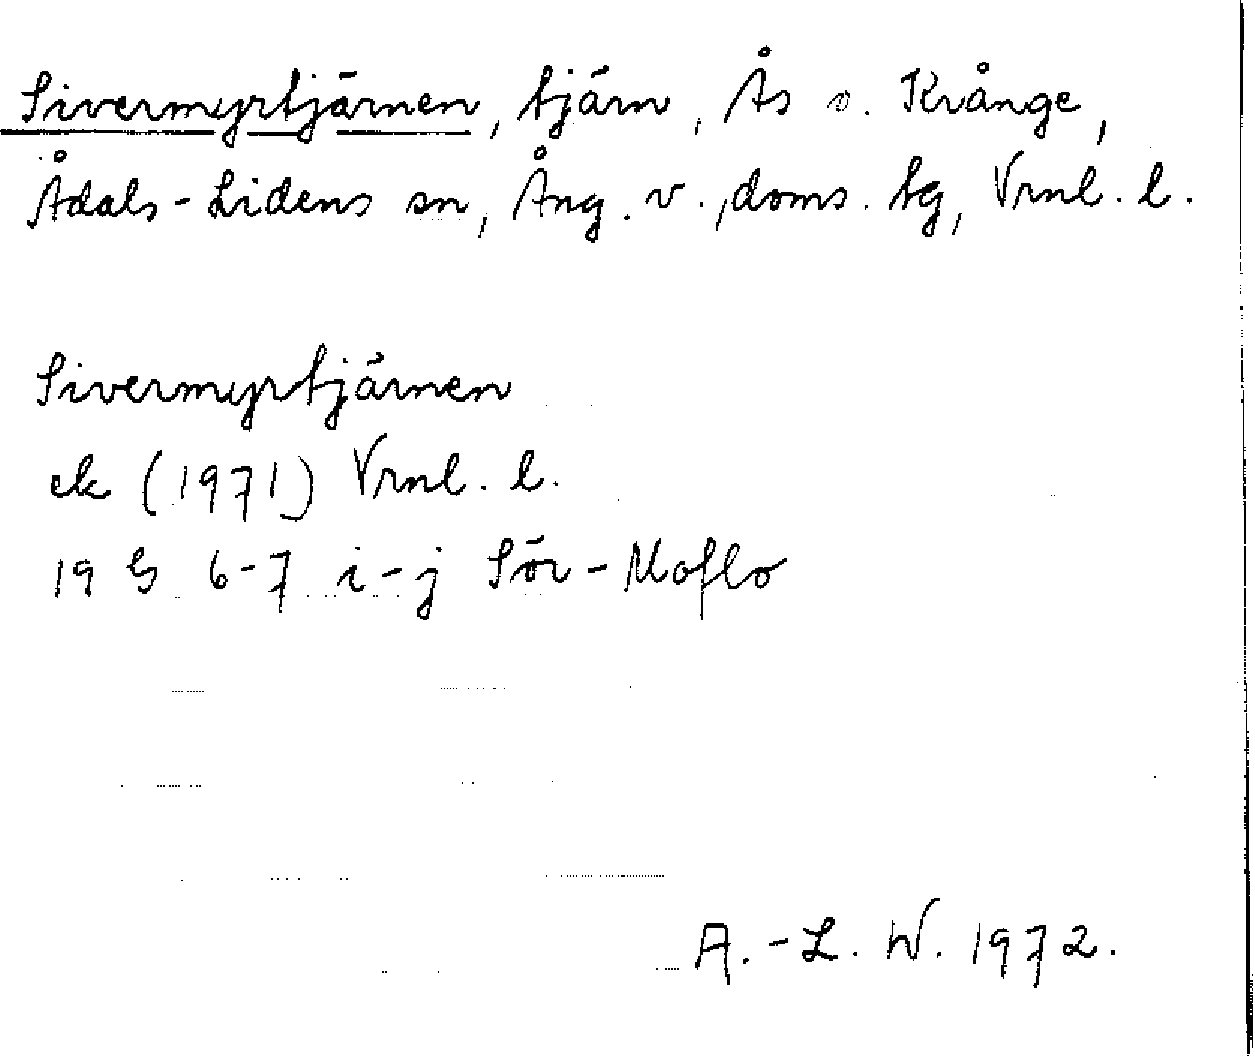 Sivermyrtjärnen, tjärn, Ås o. Krånge,
Ådals-Lidens sn, Ång. v., doms. tg, Vrnl. l.
Sivermyrtjärnen
ek (1971) Vrnl. l.
19 G 6-7 i-j Sör-Moflo
A.-L. W. 1972.